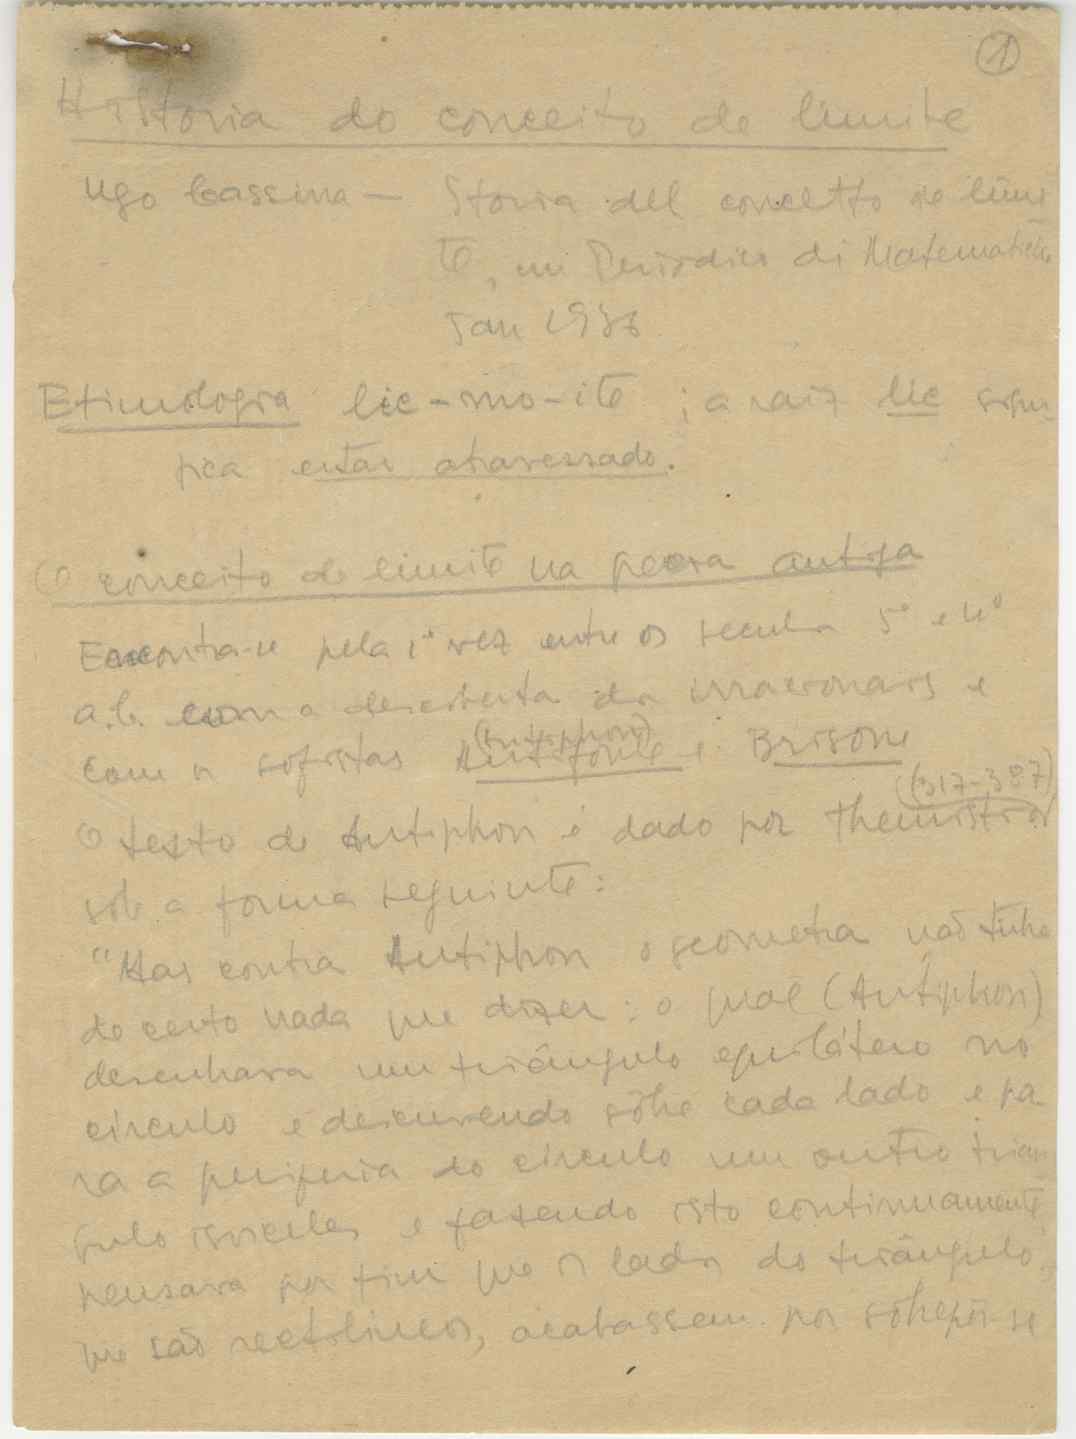 1
Historia do conceito de limite
Ugo Cassina — Storia del concetto de limi
te, in Periodico di Matematiche
Jan 1936
Etimologia lic-mo-ite ; a raiz lic signi
fica estar atravessado.
O conceito de limite na Grécia antiga
Encontra-se pela 1ª vez entre os seculos 5º e 4º
a.C. com a descoberta dos irracionais e
(Antiphon)
com os sofistas Antifonte e Brisone
(317-387)
O texto de Antiphon é dado por Themistios
sob a forma seguinte:
"Mas contra Antiphon o geometra não tinha
de certo nada que dizer: o qual (Antiphon)
desenhava um triângulo equilátero no
circulo e descrevendo sôbre cada lado e pa
ra a periferia do circulo um outro trian
gulo isosceles e fazendo isto continuamente,
pensava por fim que os lados do triângulo,
que são rectolineos, acabassem por sôbrepôr-se